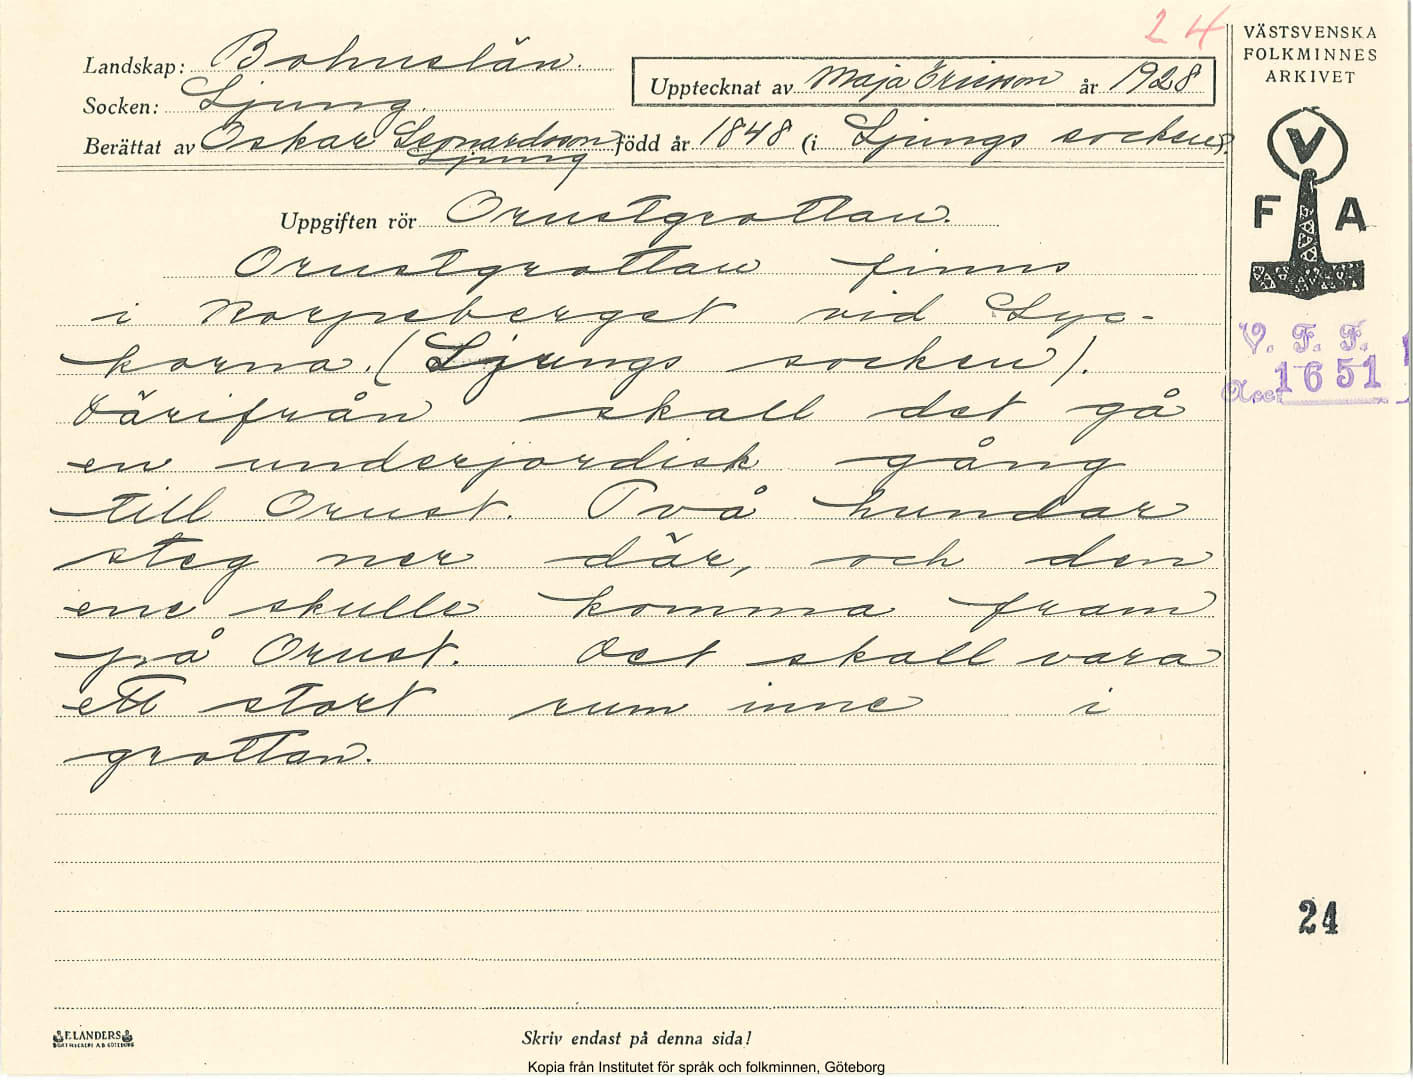 24
Landskap: Bohuslän.
Socken: Ljung.
Upptecknat av Maja Ericsson år 1928
Berättat av Oskar Leonardsson född år 1848 (i Ljungs socken).
Ljung
Uppgiften rör Orustgrottan.
Orustgrottan finns
i Korpeberget vid Lyc-
korna. (Ljungs socken).
Därifrån skall det gå
en underjordisk gång
till Orust. Två hundar
steg ner där, och den
ene skulle komma fram
på Orust. Det skall vara
ett stort rum inne i
grottan.
VÄSTSVENSKA
FOLKMINNES
ARKIVET
V
F A
V. F. F.
Acc. 1651
24
ELANDERS
BOKTRYCKERI A.B. GÖTEBORG
Skriv endast på denna sida!
Kopia från Institutet för språk och folkminnen, Göteborg